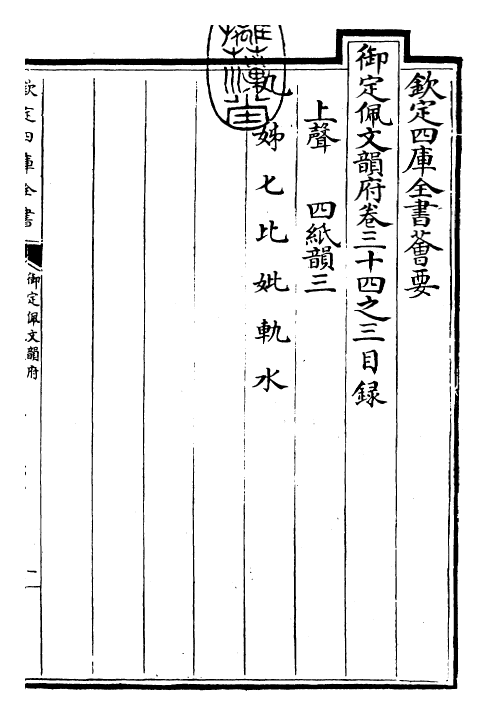 欽定四庫全書薈要
御定佩文韻府卷三十四之三目録
上聲 四紙韻三
几姊匕比妣軌水
摛藻堂
欽定四庫全書
御定佩文韻府
一